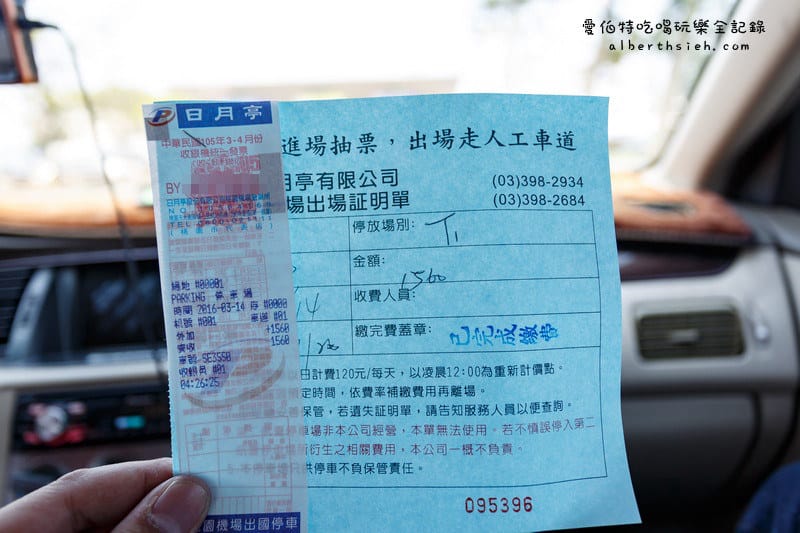 愛伯特吃喝玩樂全記錄
alberthsieh.com
P 日月亭
中華民國105年3-4月份
收銀機統一發票
BY
(桃園市代表店)
機地 #00001
PARKING 停車場
時間 2016-03-14 序 #0000
機號 #001 車道 #01
外加 +1560
實收 1560
車號 SE3550
收銀員 #01
04:26:25
園機場出國停車
進場抽票，出場走人工車道
月亭有限公司
(03)398-2934
場出場証明單
(03)398-2684
停放場別：T1
金額：1560
收費人員：
繳完費蓋章：已完成繳費
日計費120元/每天，以凌晨12:00為重新計價點。
定時間，依費率補繳費用再離場。
保管，若遺失証明單，請告知服務人員以便查詢。
停車場非本公司經營，本單無法使用。若不慎誤停入第二
所衍生之相關費用，本公司一概不負責。
供停車不負保管責任。
095396